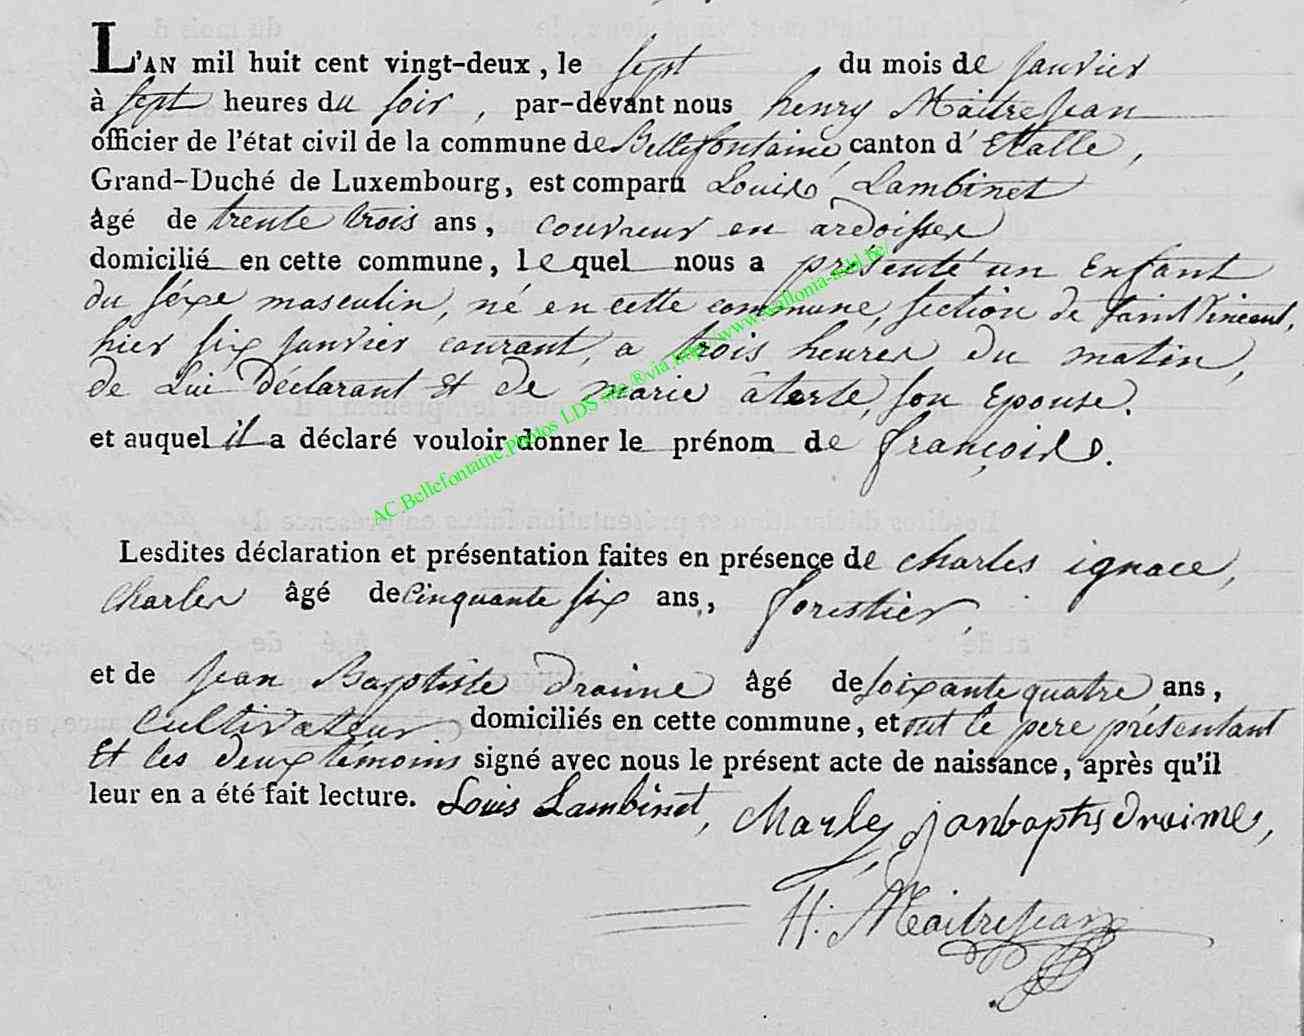 L'AN mil huit cent vingt-deux, le sept du mois de janvier
à sept heures du soir, par-devant nous henry Maitrejean
officier de l'état civil de la commune de Bellefontaine, canton d'Etalle,
Grand-Duché de Luxembourg, est comparu Louis Lambinet
âgé de trente trois ans, couvreur en ardoisses
domicilié en cette commune, lequel nous a présenté un Enfant
du séxe masculin, né en cette commune, section de saint Vincent,
hier six janvier courant, a trois heures du matin,
de Lui Déclarant et de marie son Epouse.
et auquel il a déclaré vouloir donner le prénom de françois.
AC.Bellefontaine.Photos LDS
Lesdites déclaration et présentation faites en présence de charles ignace,
Charles âgé de cinquante six ans, forestier,
et de jean Baptiste Draime âgé de soixante quatre ans,
Cultivateur domiciliés en cette commune, et ont le pere présentant
Et les deux témoins signé avec nous le présent acte de naissance, après qu'il
leur en a été fait lecture. Louis Lambinet, janbaptis Draime,
H. Maitrejean